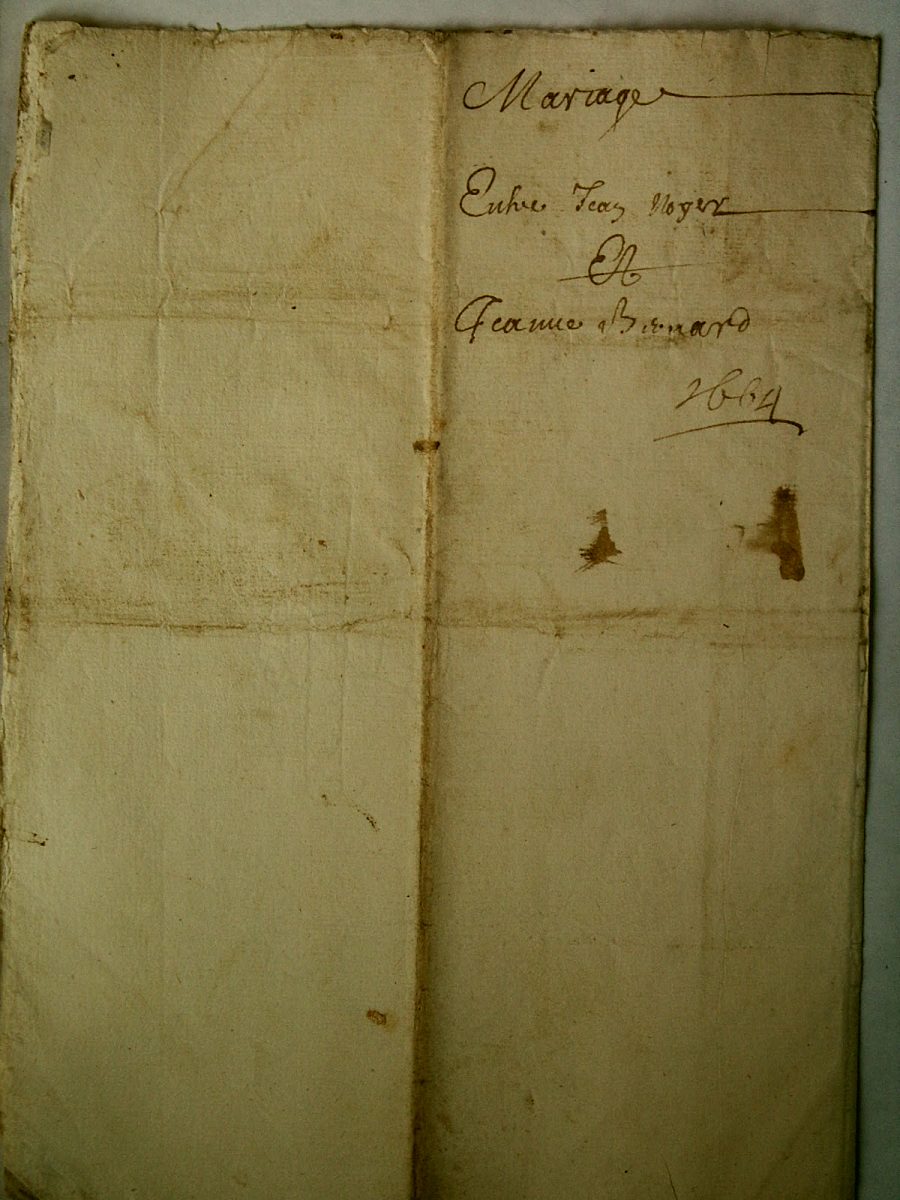 Mariage
Entre Jean Noyer
Et
Jeanne Bernard
1664